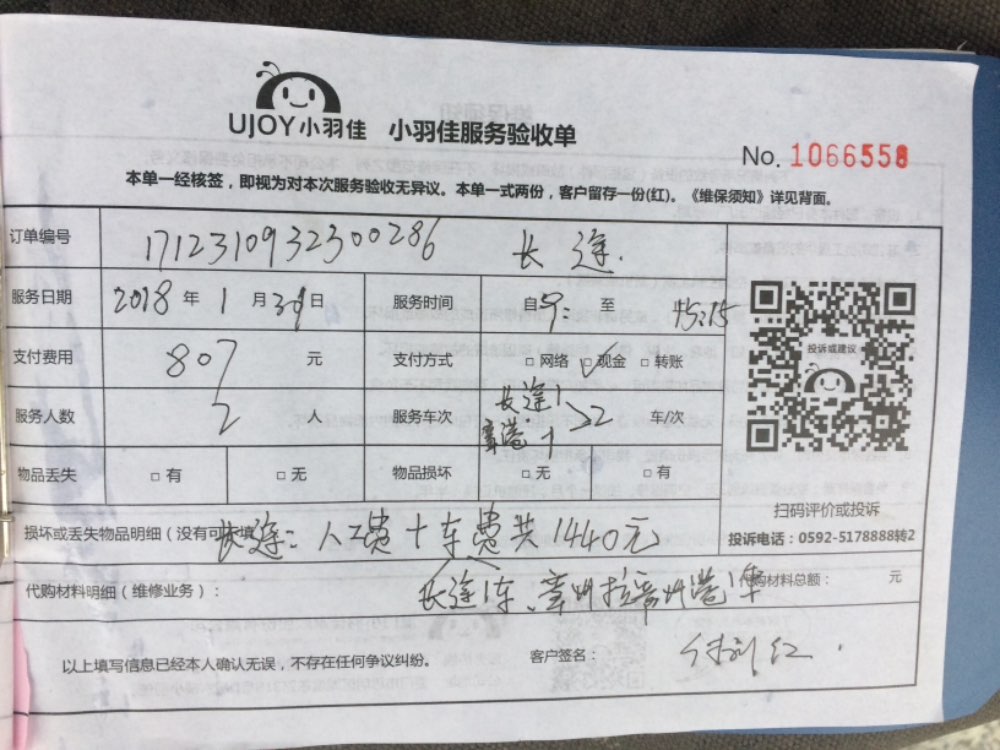 UJOY小羽佳 小羽佳服务验收单
No. 1066558
本单一经核签，即视为对本次服务验收无异议。本单一式两份，客户留存一份(红)。《维保须知》详见背面。
订单编号 1712310932300286 长途.
服务日期 2018 年 1 月 日 服务时间 自 9: 至 15:15
支付费用 807 元 支付方式 □ 网络 □ 现金 □ 转账
投诉或建议
服务人数 2 人 服务车次 长途1 >2 车/次
物品丢失 □ 有 □ 无 物品损坏 □ 无 □ 有
扫码评价或投诉
损坏或丢失物品明细（没有可 填 长途：人工费+车费共1440元
投诉电话：0592-5178888转2
代购材料明细（维修业务）： 长途1车、 购材料总额： 元
以上填写信息已经本人确认无误，不存在任何争议纠纷。 客户签名：